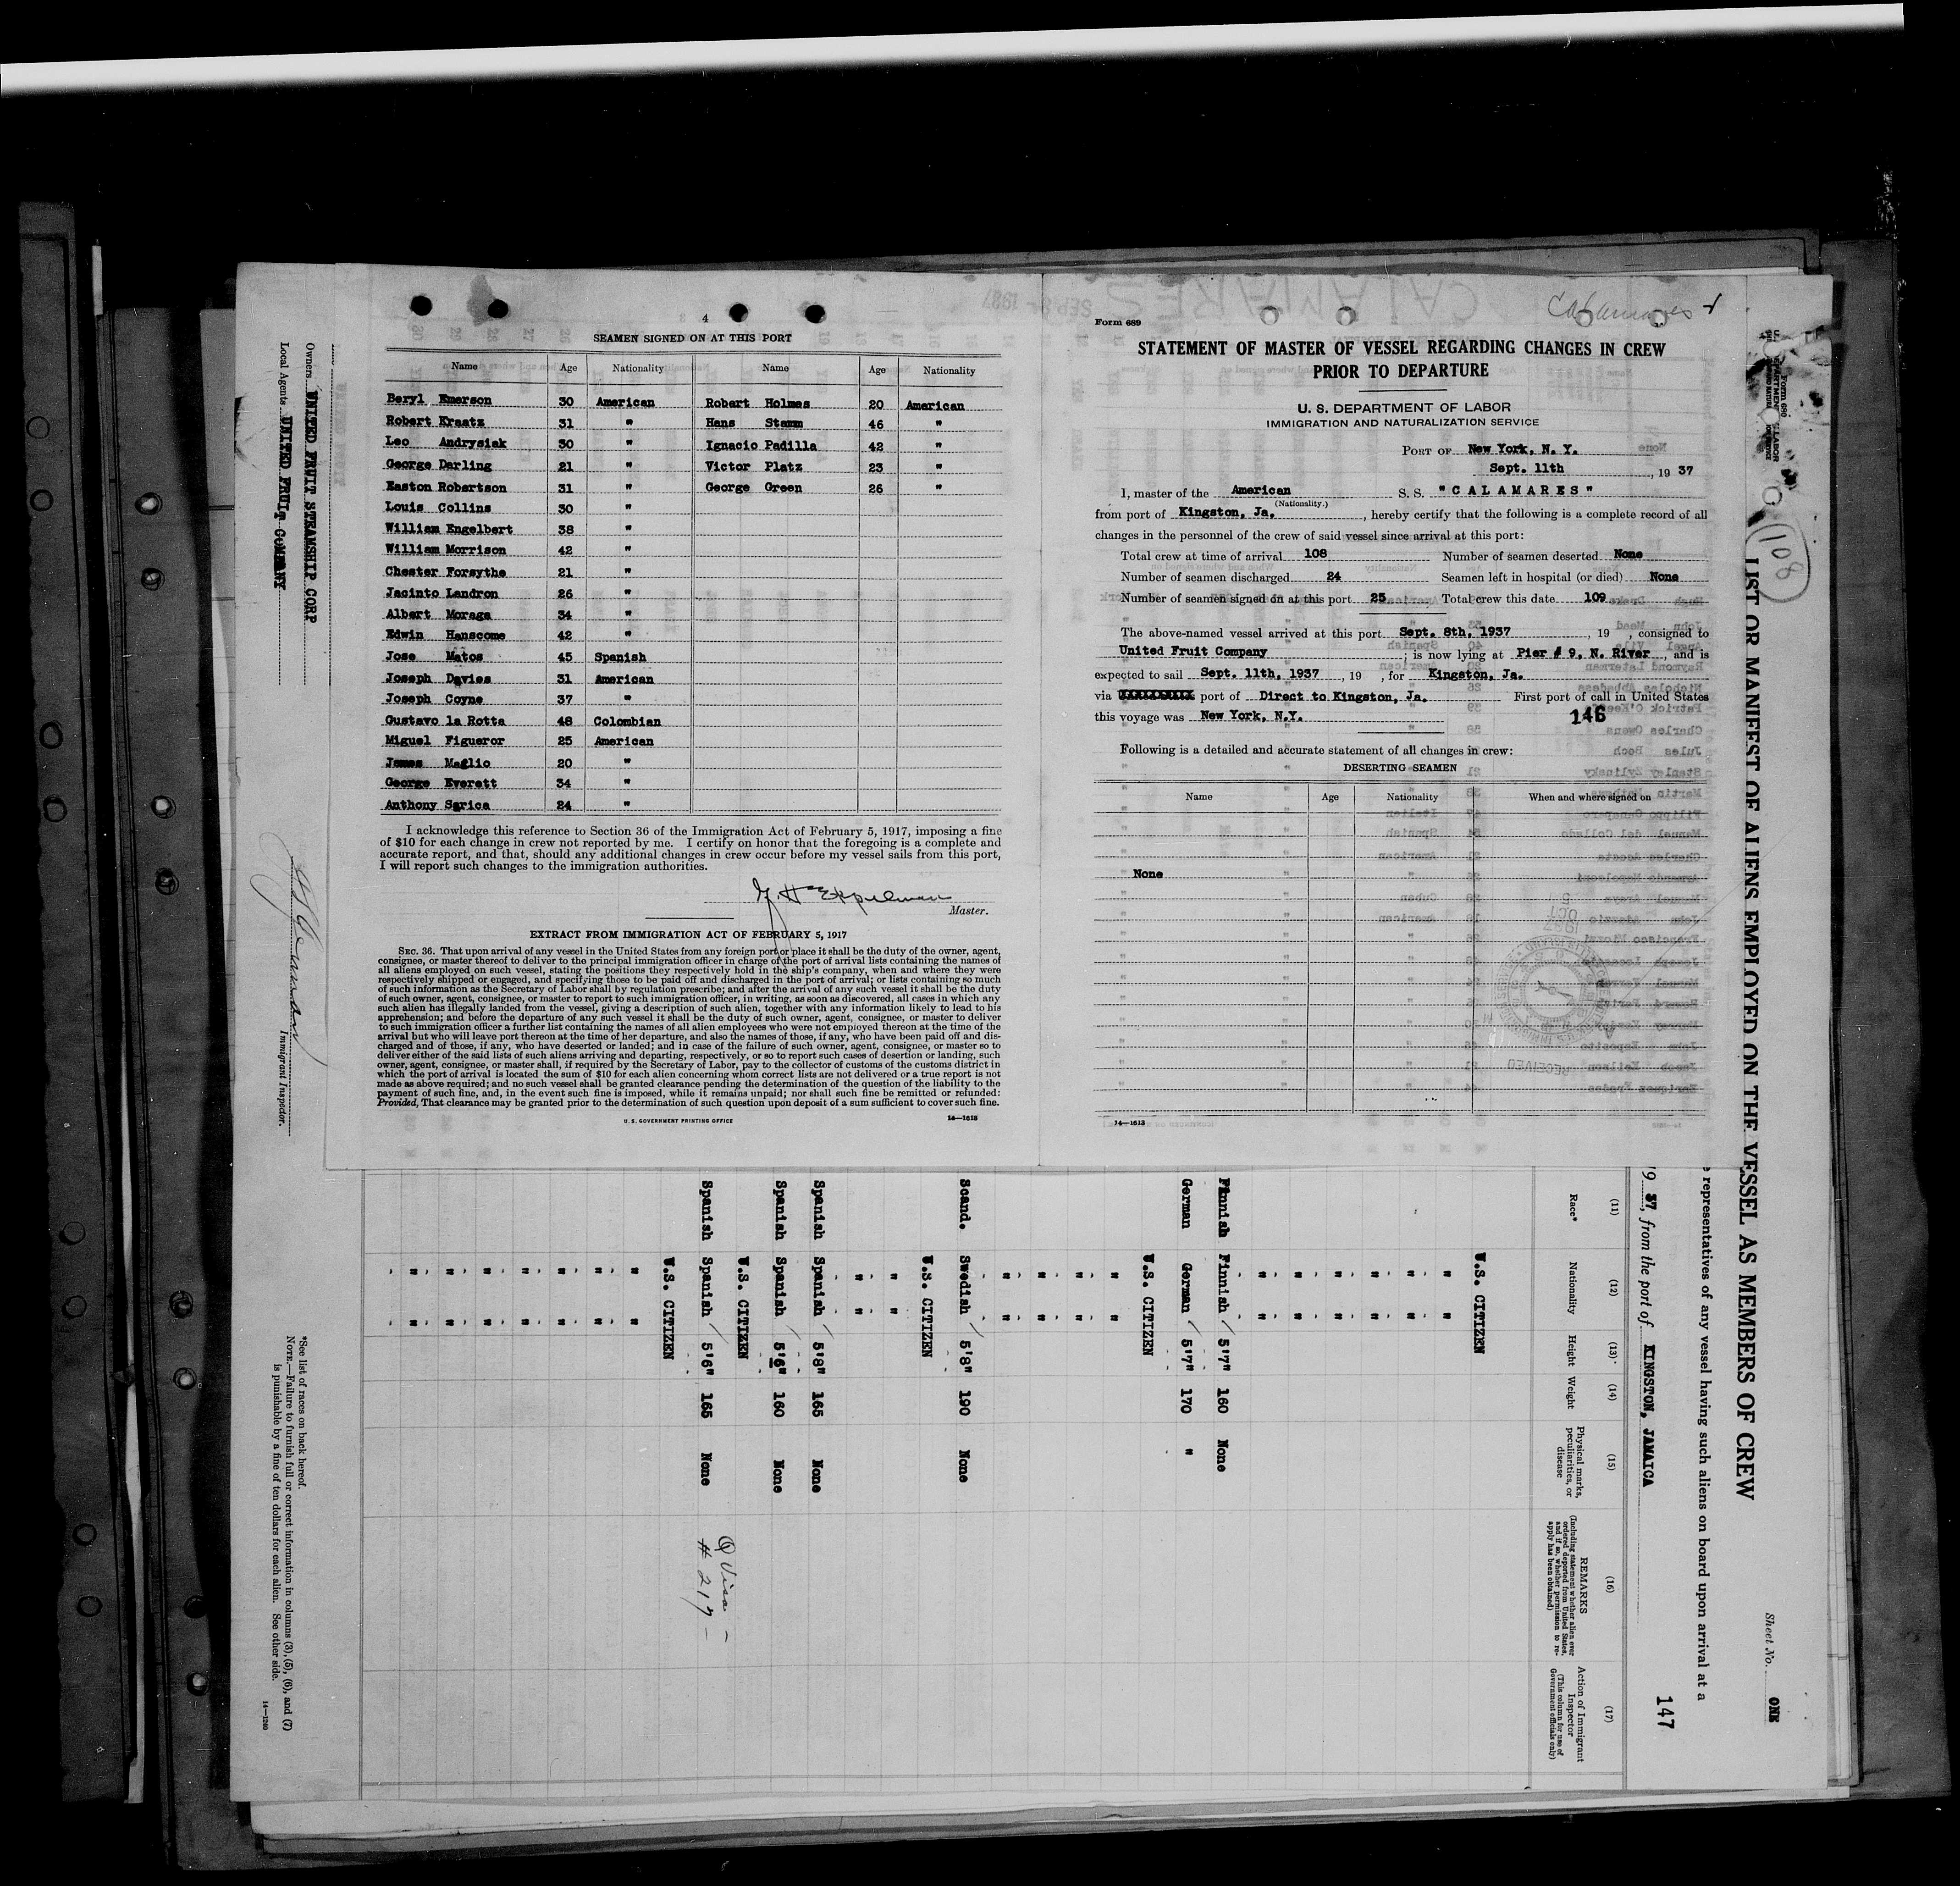 4
SEAMEN SIGNED ON AT THIS PORT
Name Age Nationality Name Age Nationality
Beryl Emerson 30 American Robert Holmes 20 American
Robert Kraatz 31 " Hans Stamm 46 "
Leo Andrysiak 30 " Ignacio Padilla 42 "
George Darling 21 " Victor Platz 23 "
Easton Robertson 31 " George Green 26 "
Louis Collins 30 "
William Engelbert 38 "
William Morrison 42 "
Chester Forsythe 21 "
Jacinto Landron 26 "
Albert Moraga 34 "
Edwin Hanscome 42 "
Jose Matos 45 Spanish
Joseph Davies 31 American
Joseph Coyne 37 "
Gustavo la Rotta 48 Colombian
Miguel Figueror 25 American
James Maglio 20 "
George Everett 34 "
Anthony Sarica 24 "
I acknowledge this reference to Section 36 of the Immigration Act of February 5, 1917, imposing a fine
of $10 for each change in crew not reported by me. I certify on honor that the foregoing is a complete and
accurate report, and that, should any additional changes in crew occur before my vessel sails from this port,
I will report such changes to the immigration authorities.
Master.
EXTRACT FROM IMMIGRATION ACT OF FEBRUARY 5, 1917
SEC. 36. That upon arrival of any vessel in the United States from any foreign port or place it shall be the duty of the owner, agent,
consignee, or master thereof to deliver to the principal immigration officer in charge of the port of arrival lists containing the names of
all aliens employed on such vessel, stating the positions they respectively hold in the ship's company, when and where they were
respectively shipped or engaged, and specifying those to be paid off and discharged in the port of arrival; or lists containing so much
of such information as the Secretary of Labor shall by regulation prescribe; and after the arrival of any such vessel it shall be the duty
of such owner, agent, consignee, or master to report to such immigration officer, in writing, as soon as discovered, all cases in which any
such alien has illegally landed from the vessel, giving a description of such alien, together with any information likely to lead to his
apprehension; and before the departure of any such vessel it shall be the duty of such owner, agent, consignee, or master to deliver
to such immigration officer a further list containing the names of all alien employees who were not employed thereon at the time of the
arrival but who will leave port thereon at the time of her departure, and also the names of those, if any, who have been paid off and dis-
charged and of those, if any, who have deserted or landed; and in case of the failure of such owner, agent, consignee, or master so to
deliver either of the said lists of such aliens arriving and departing, respectively, or so to report such cases of desertion or landing, such
owner, agent, consignee, or master shall, if required by the Secretary of Labor, pay to the collector of customs of the customs district in
which the port of arrival is located the sum of $10 for each alien concerning whom correct lists are not delivered or a true report is not
made as above required; and no such vessel shall be granted clearance pending the determination of the question of the liability to the
payment of such fine, and, in the event such fine is imposed, while it remains unpaid; nor shall such fine be remitted or refunded:
Provided, That clearance may be granted prior to the determination of such question upon deposit of a sum sufficient to cover such fine.
U. S. GOVERNMENT PRINTING OFFICE 14—1613
Calamares
Form 689
STATEMENT OF MASTER OF VESSEL REGARDING CHANGES IN CREW
PRIOR TO DEPARTURE
U. S. DEPARTMENT OF LABOR
IMMIGRATION AND NATURALIZATION SERVICE
PORT OF New York, N. Y.
Sept. 11th, 19 37
I, master of the American S. S. "CALAMARES"
(Nationality.)
from port of Kingston, Ja., hereby certify that the following is a complete record of all
changes in the personnel of the crew of said vessel since arrival at this port:
Total crew at time of arrival 108 Number of seamen deserted None
Number of seamen discharged 24 Seamen left in hospital (or died) None
Number of seamen signed on at this port 25 Total crew this date 109
The above-named vessel arrived at this port Sept. 8th, 1937, 19 , consigned to
United Fruit Company; is now lying at Pier # 9, N. River, and is
expected to sail Sept. 11th, 1937, 19 , for Kingston, Ja.
via port of Direct to Kingston, Ja. First port of call in United States
this voyage was New York, N.Y.
146
Following is a detailed and accurate statement of all changes in crew:
DESERTING SEAMEN
Name Age Nationality When and where signed on
None
14—1613
Form 680
108
LIST OR MANIFEST OF ALIENS EMPLOYED ON THE VESSEL AS MEMBERS OF CREW
Sheet No. ONE
representatives of any vessel having such aliens on board upon arrival at a
19 37, from the port of KINGSTON, JAMAICA
147
(11) (12) (13) (14) (15) (16) (17)
Race* Nationality Height Weight Physical marks, peculiarities, or disease
REMARKS
(Including statement whether alien ever ordered deported from United States, and if so, whether permission to re-apply has been obtained)
Action of Immigrant Inspector
(This column for use of Government officials only)
U.S. CITIZEN
" "
" "
" "
" "
" "
" "
Finnish Finnish 5'7" 160 None
German German 5'7" 170 "
U.S. CITIZEN
" "
" "
" "
" "
Scand. Swedish 5'8" 190 None
U.S. CITIZEN
" "
" "
Spanish Spanish 5'8" 165 None
Spanish Spanish 5'6" 160 None
U.S. CITIZEN
Spanish Spanish 5'6" 165 None
Q Visa -
# 217 -
U.S. CITIZEN
" "
" "
" "
" "
" "
" "
" "
Owners UNITED FRUIT STEAMSHIP CORP
Local Agents UNITED FRUIT COMPANY
Immigrant Inspector.
*See list of races on back hereof.
NOTE.—Failure to furnish full or correct information in columns (3), (5), (6), and (7)
is punishable by a fine of ten dollars for each alien. See other side.
14—1240